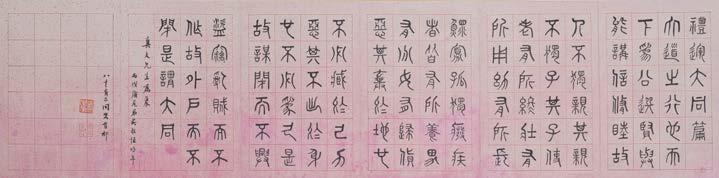 禮運大同篇
大道之行也天
下為公選賢與
能講信修睦故
人不獨親其親
不獨子其子使
老有所終壯有
所用幼有所長
鰥寡孤獨廢疾
者皆有所養男
有分女有歸貨
惡其棄於地也
不必藏於己力
惡其不出於身
也不必為己是
故謀閉而不興
盜竊亂賊而不
作故外戶而不
閉是謂大同
先生
八十有二